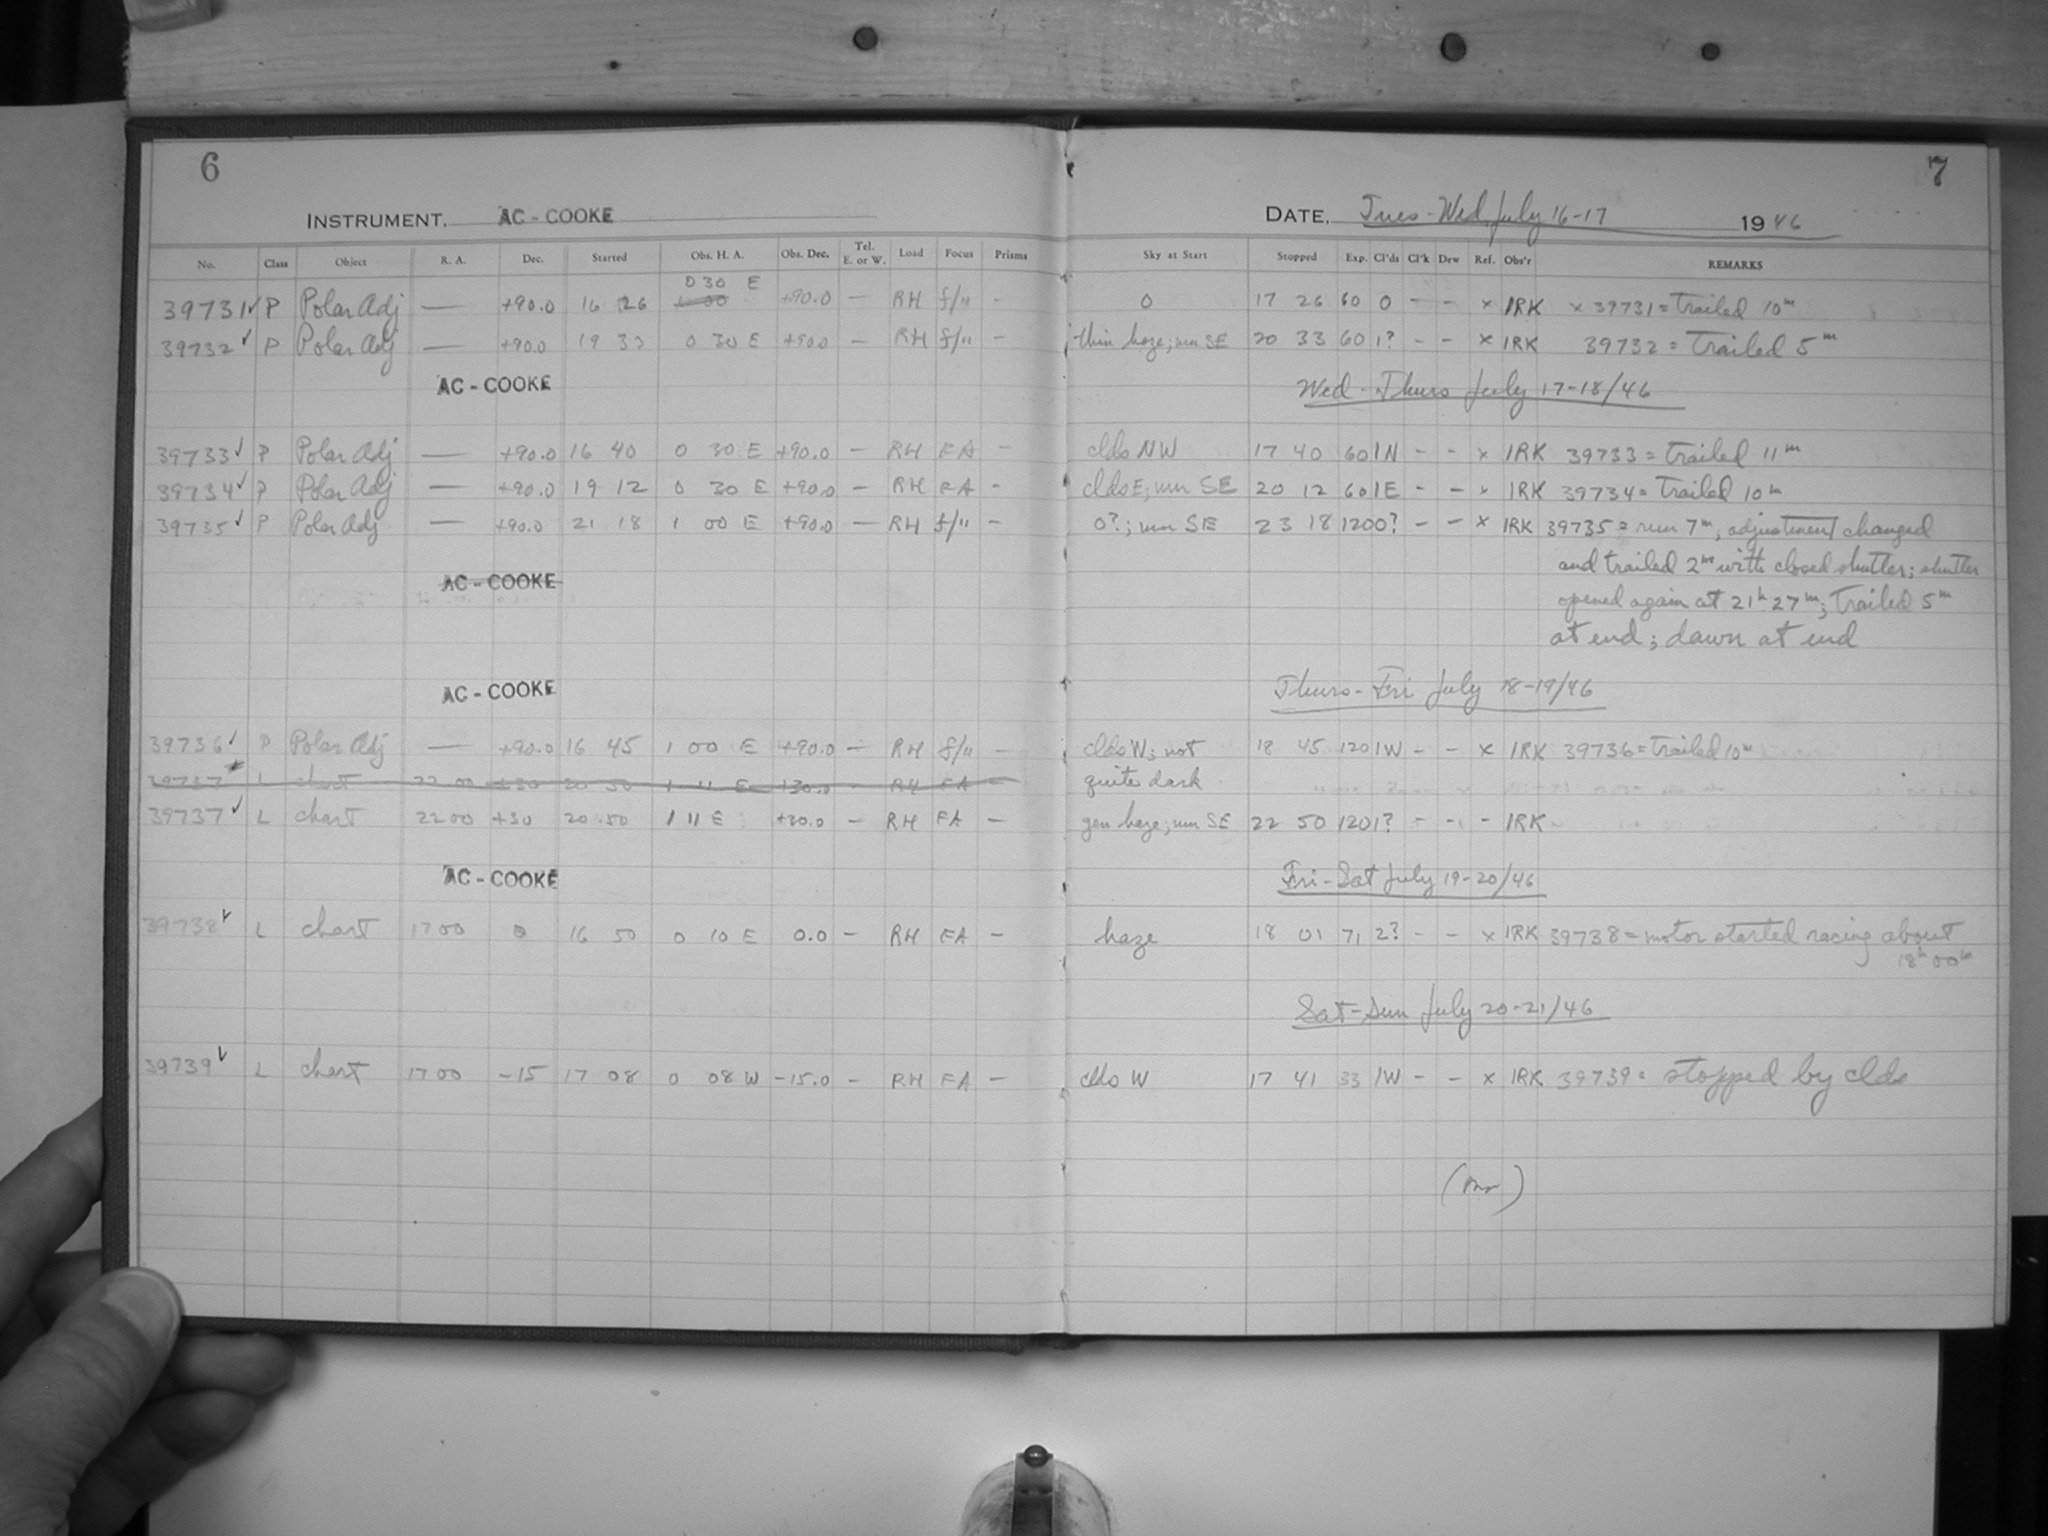 6
7
INSTRUMENT, AC - COOKE
DATE, Tues - Wed, July 16-17 1946
No. Class Object R. A. Dec. Started Obs. H. A. Obs. Dec. Tel. E. or W. Load Focus Prisms Sky at Start Stopped Exp. Cl'ds Cl'k Dew Ref. Obs'r REMARKS
0 30 E
39731 ✓ P Polar Adj — +90.0 16 26 1 00 +90.0 — RH f/11 - 0 17 26 60 0 - - x IRK x 39731 = trailed 10m
39732 ✓ P Polar Adj — +90.0 19 33 0 30 E +90.0 — RH f/11 - thin haze; mn SE 20 33 60 1? - - x IRK 39732 = trailed 5m
AC - COOKE Wed - Thurs July 17-18/46
39733 ✓ P Polar Adj — +90.0 16 40 0 30 E +90.0 — RH FA - clds NW 17 40 60 1N - - x IRK 39733 = trailed 11m
39734 ✓ P Polar Adj — +90.0 19 12 0 30 E +90.0 — RH FA - clds E; mn SE 20 12 60 1E - - x IRK 39734 = trailed 10m
39735 ✓ P Polar Adj — +90.0 21 18 1 00 E +90.0 — RH f/11 - 0?; mn SE 23 18 120 0? - - x IRK 39735 = run 7m, adjustment changed
and trailed 2m with closed shutter; shutter
AC - COOKE
opened again at 21h 27m; trailed 5m
at end; dawn at end
AC - COOKE Thurs - Fri July 18-19/46
39736 ✓ P Polar Adj — +90.0 16 45 1 00 E +90.0 — RH f/11 - clds W; not 18 45 120 1W - - x IRK 39736 = trailed 10m
39737 L chart 22 00 +30 20 50 1 11 E +30.0 - RH FA - quite dark
39737 ✓ L chart 22 00 +30 20 50 1 11 E +30.0 - RH FA - gen haze; mn SE 22 50 120 1? - - - IRK
AC - COOKE Fri - Sat July 19-20/46
39738 ✓ L chart 17 00 0 16 50 0 10 E 0.0 - RH FA - haze 18 01 71 2? - - x IRK 39738 = motor started racing about
18h 00m
Sat - Sun July 20-21/46
39739 ✓ L chart 17 00 -15 17 08 0 08 W -15.0 - RH FA - clds W 17 41 33 1W - - x IRK 39739 = stopped by clds